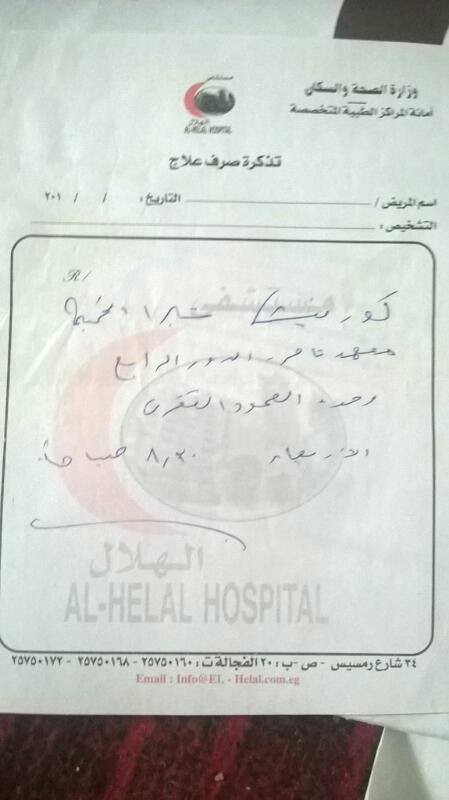 وزارة الصحة والسكان
أمانة المراكز الطبية المتخصصة
مستشفى
الهلال
AL-HELAL HOSPITAL
تذكرة صرف علاج
اسم المريض / التاريخ : / / ٢٠١
التشخيص :
R/
مستشفى
كورنيش شبرا الخيمة
معهد ناصر - الدور الرابع
وحدة العمود الفقرى
الأربعاء ٨,٣٠ صباحاً
الهلال
AL-HELAL HOSPITAL
٣٤ شارع رمسيس - ص - ب : ٢٠ الفجالة ت : ٢٥٧٥٠١٦٠ - ٢٥٧٥٠١٦٨ - ٢٥٧٥٠١٧٢
Email : Info@EL - Helal.com.eg